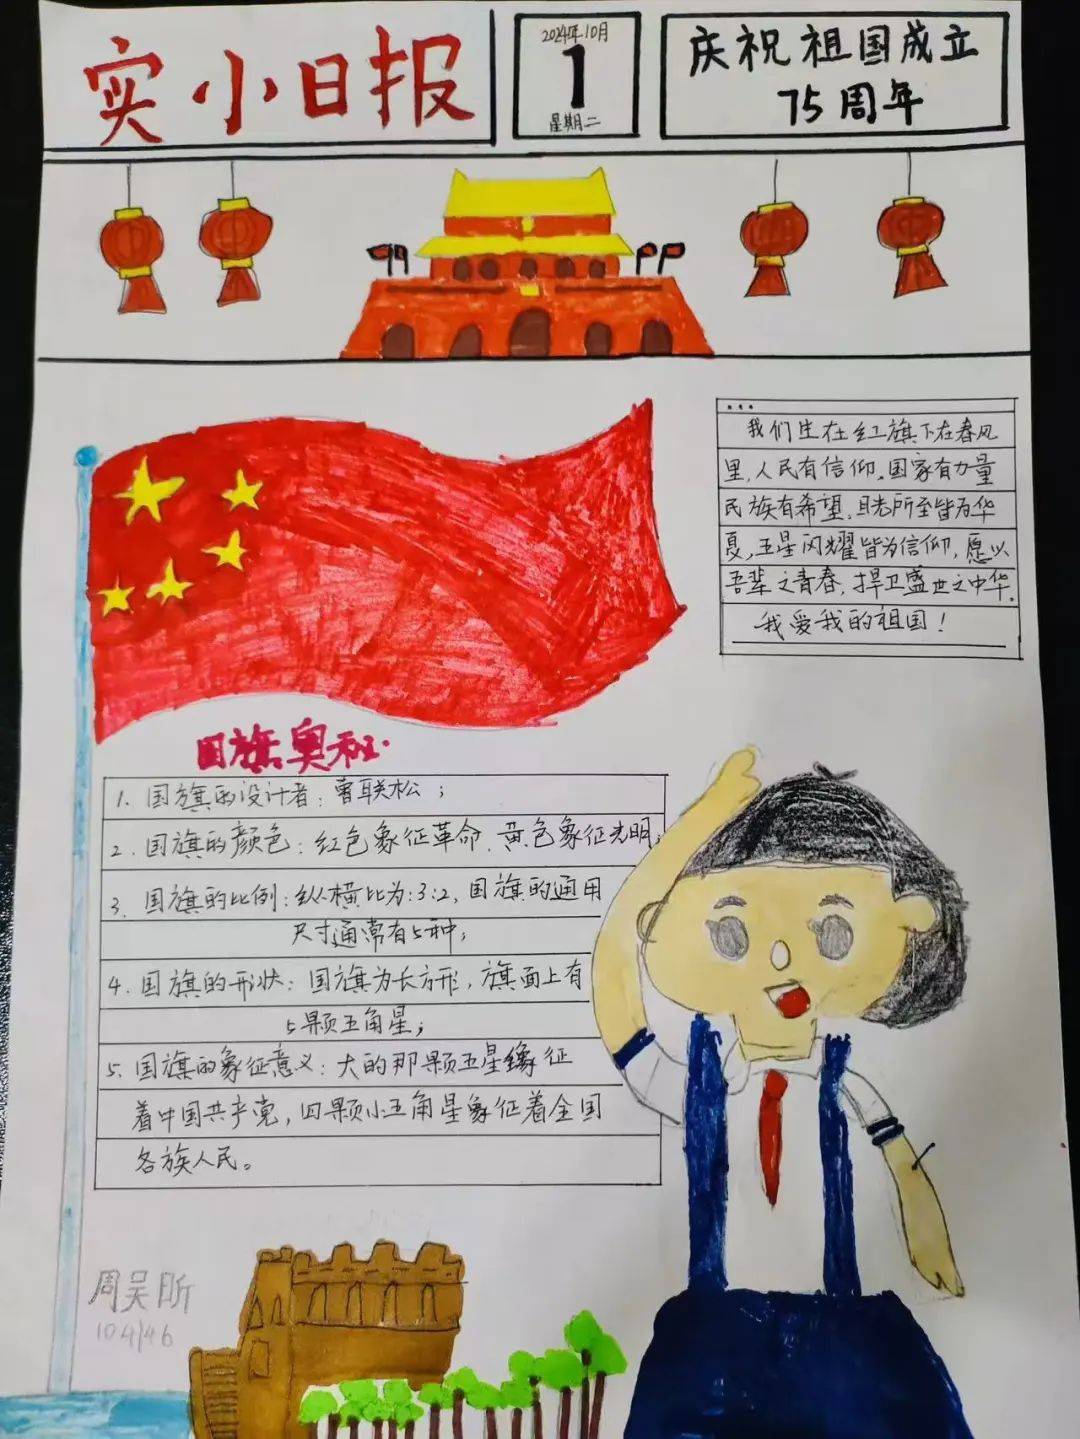 实小日报
2024年10月
1
星期二
庆祝祖国成立
75周年
我们生在红旗下在春风
里,人民有信仰。国家有力量
民族有希望,目光所至皆为华
夏,五星闪耀皆为信仰,愿以
吾辈之青春,捍卫盛世之中华。
我爱我的祖国!
国旗奥秘
1. 国旗的设计者:曾联松;
2. 国旗的颜色:红色象征革命、黄色象征光明;
3. 国旗的比例:纵横比为:3:2,国旗的通用
尺寸通常有5种;
4. 国旗的形状:国旗为长方形,旗面上有
5颗五角星;
5. 国旗的象征意义:大的那颗五星象征
着中国共产党,四颗小五角星象征着全国
各族人民。
周吴昕
104/46